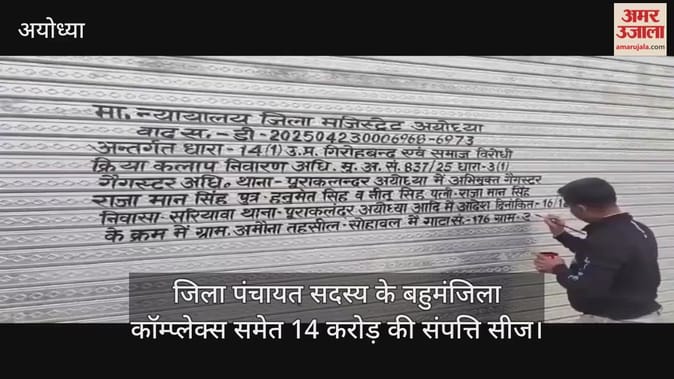 अयोध्या
अमर
उजाला
amarujala.com
मा. न्यायालय जिला मजिस्ट्रेट अयोध्या
वाद स.- डी - 202504230006966-6973
अन्तर्गत धारा - 14(1) उ.प्र. गिरोहबन्द एवं समाज विरोधी
क्रिया कलाप निवारण अधि. मु. अ. सं. 837/25 धारा-3(1)
गैंगस्टर अधि. थाना - पूराकलन्दर अयोध्या में अभियुक्त गैंगस्टर
राजा मान सिंह पुत्र हनुमंत सिंह व नीतू सिंह पत्नी राजा मान सिंह
निवासी सरियावा थाना - पूराकलंदर अयोध्या आदि में आदेश दिनांकित - 16/1
के क्रम में ग्राम. अमोना तहसील - सोहावल में गाटा सं.-176 ग्राम-
जिला पंचायत सदस्य के बहुमंजिला
कॉम्प्लेक्स समेत 14 करोड़ की संपत्ति सीज।